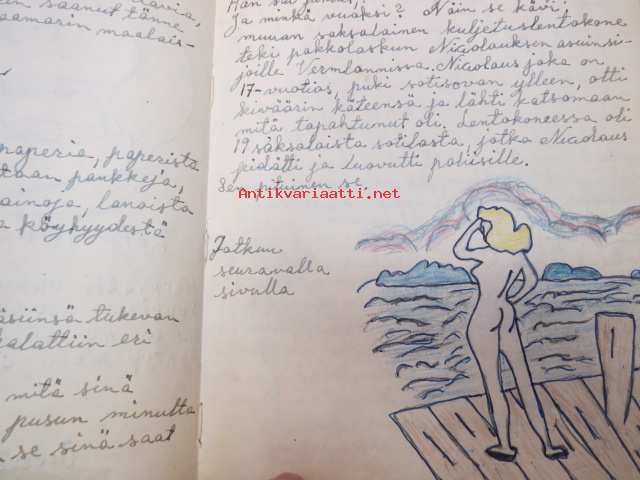 saanut tänne
aamarin maalais-
paperia, paperista
taan paukkeja,
ainoja, lanoista
a köyhyydestä
äsiinsä tukevan
alattiin eri
mitä sinä
pusun minulta
se sinä saat
Ja minkä vuoksi? Näin se kävi,
muuan saksalainen kuljetuslentokone
teki pakkolaskun Nicolauksen asuinsi-
joille Vermlannissa. Nicolaus joka on
17-vuotias, puki sotisovan ylleen, otti
kiväärin käteensä ja lähti katsomaan
mitä tapahtunut oli. Lentokoneessa oli
19 saksalaista sotilasta, jotka Nicolaus
pidätti ja luovutti poliisille.
Sen pituinen se.
Antikvariaatti.net
Jatkuu
seuraavalla
sivulla